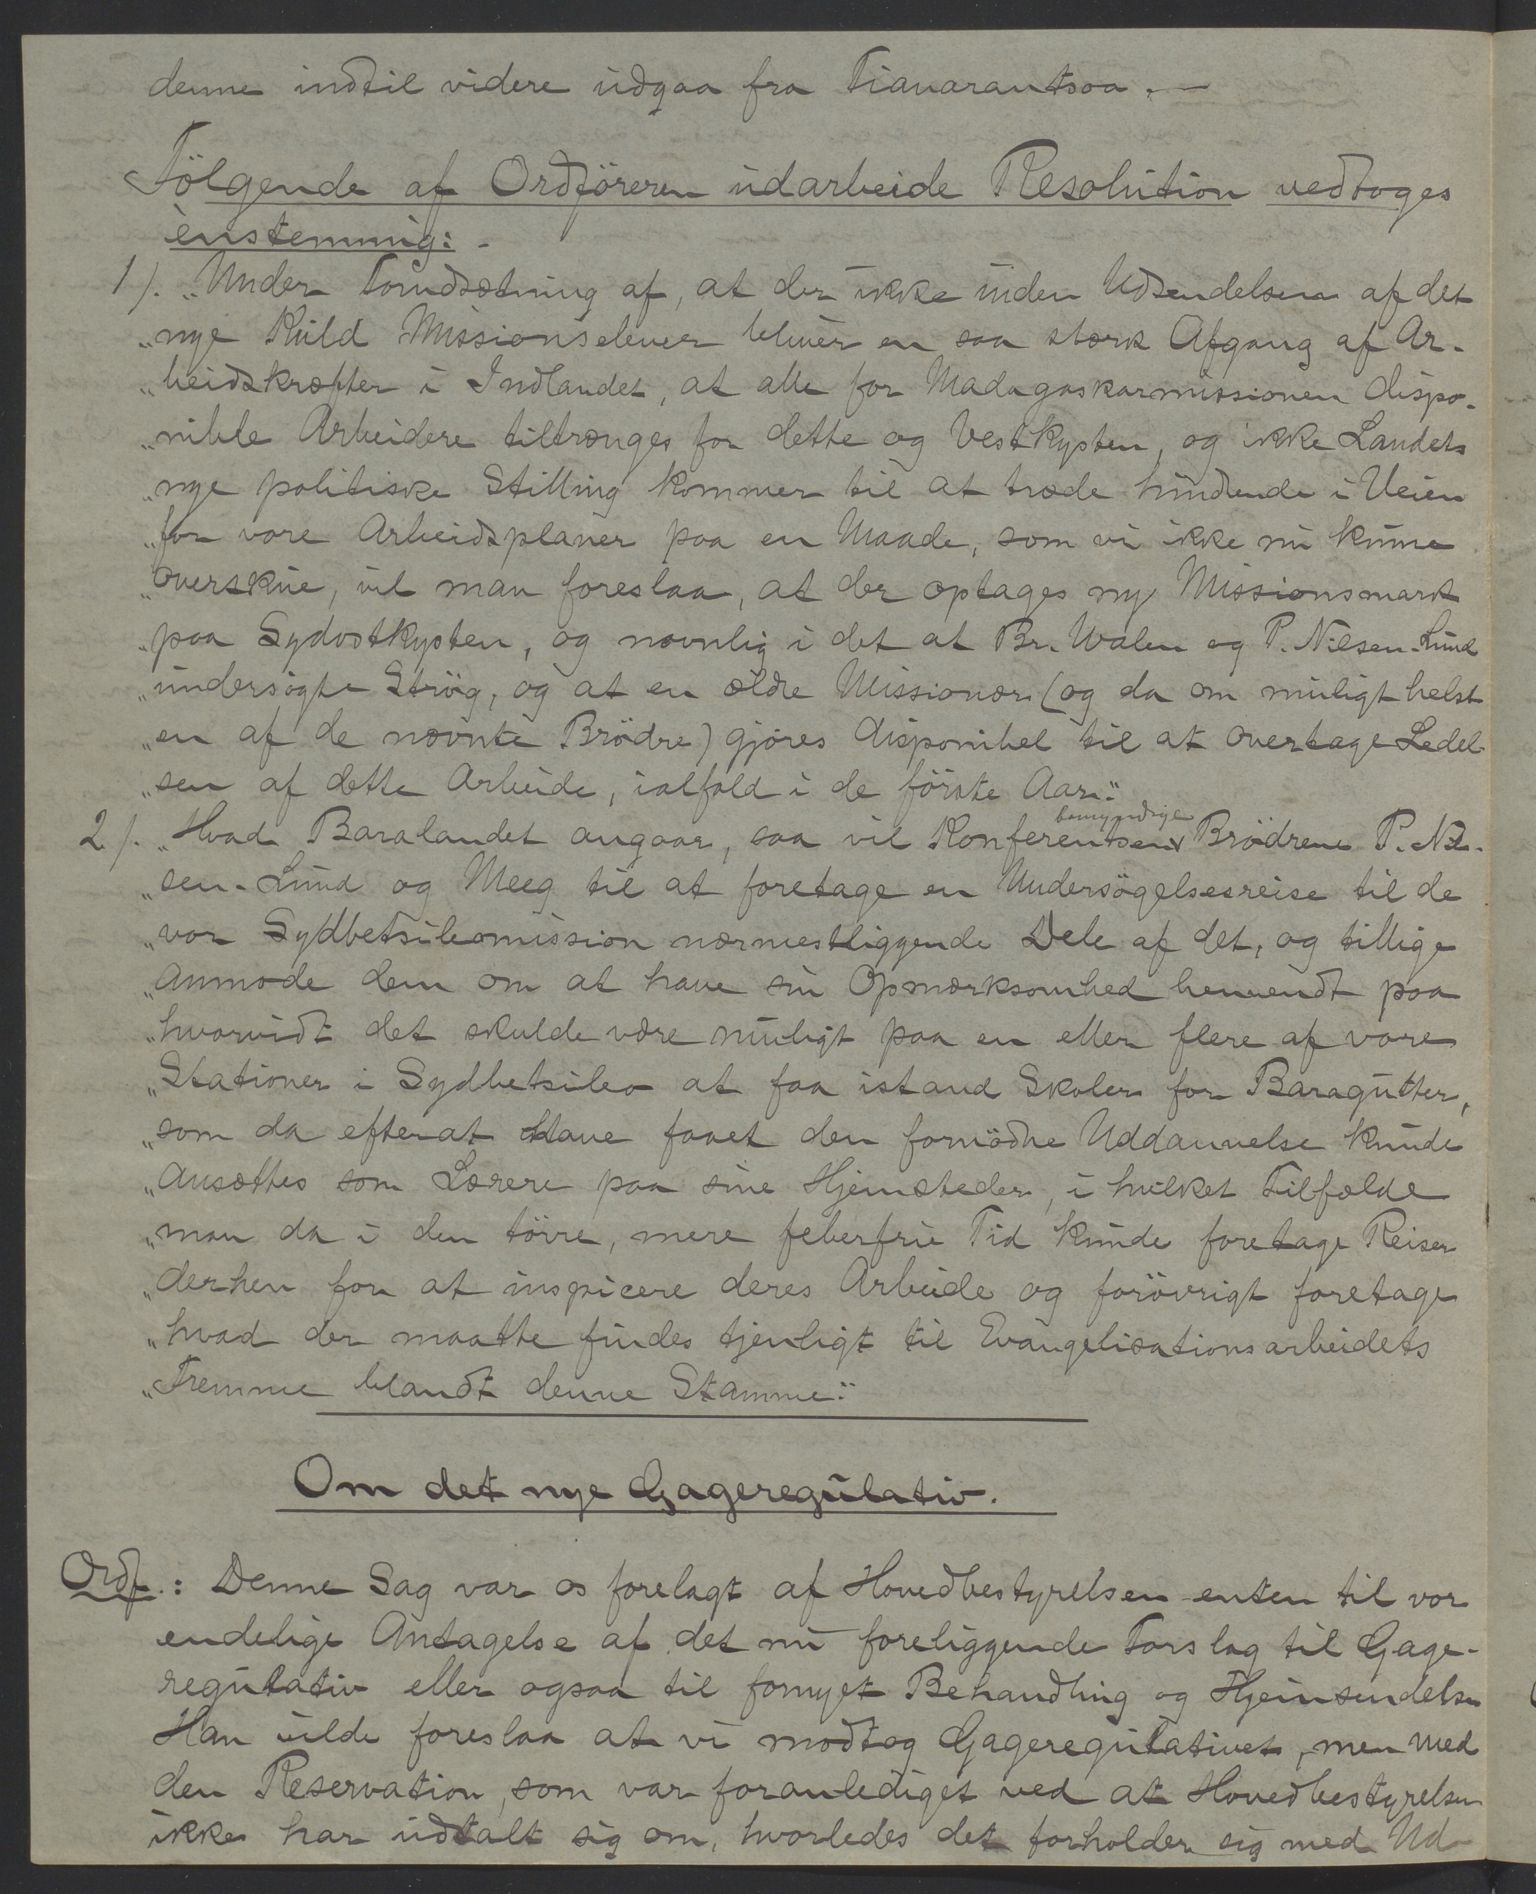 denne indtil videre udgaa fra Fianarantsoa. —
Fölgende af Ordföreren udarbeide Resolution vedtoges
enstemmig: -
1). „Under Forudsætning af, at der ikke inden Udsendelsen af det
„nye Kuld Missionselever bliver en saa stærk Afgang af Ar-
„beidskræfter i Indlandet, at alle for Madagaskarmissionen dispo-
„nible Arbeidere tiltrænges for dette og Vestkysten, og ikke Landets
„nye politiske Stilling kommer til at træde hindrende i Veien
„for vore Arbeidsplaner paa en Maade, som vi ikke nu kunne
„overskue, vil man foreslaa, at der optages ny Missionsmark
„paa Sydostkysten, og navnlig i det at Br. Walen og P. Nilsen-Lund
„undersögte Strög, og at en ældre Missionær (og da om muligt helst
„en af de nævnte Brödre) gjöres disponibel til at overtage Ledel-
„sen af dette Arbeide, ialfald i de förste Aar."
2). „Hvad Baralandet angaar, saa vil Konferentsen bemyndige Brödrene P. Nil-
„sen-Lund og Meeg til at foretage en Undersögelsesreise til de
„vor Sydbetsileomission nærmestliggende Dele af det, og tillige
„anmode dem om at have sin Opmærksomhed henvendt paa
„hvorvidt det skulde være muligt paa en eller flere af vore
„Stationer i Sydbetsileo at faa istand Skoler for Baragutter,
„som da efterat have faaet den fornödne Uddannelse kunde
„ansættes som Lærere paa sine Hjemsteder, i hvilket Tilfælde
„man da i den törre, mere feberfrie Tid kunde foretage Reiser
„derhen for at inspicere deres Arbeide og forövrigt foretage
„hvad der maatte findes tjenligt til Evangelisationsarbeidets
„Fremme blandt denne Stamme."
Om det nye Gageregulativ.
Ordf.: Denne Sag var os forelagt af Hovedbestyrelsen enten til vor
endelige Antagelse af det nu foreliggende Forslag til Gage-
regulativ eller ogsaa til fornyet Behandling og Hjemsendelse
Han vilde foreslaa at vi modtog Gageregulativet, men med
den Reservation, som var foranlediget ved at Hovedbestyrelsen
ikke har udtalt sig om, hvorledes det forholder sig med Ud-